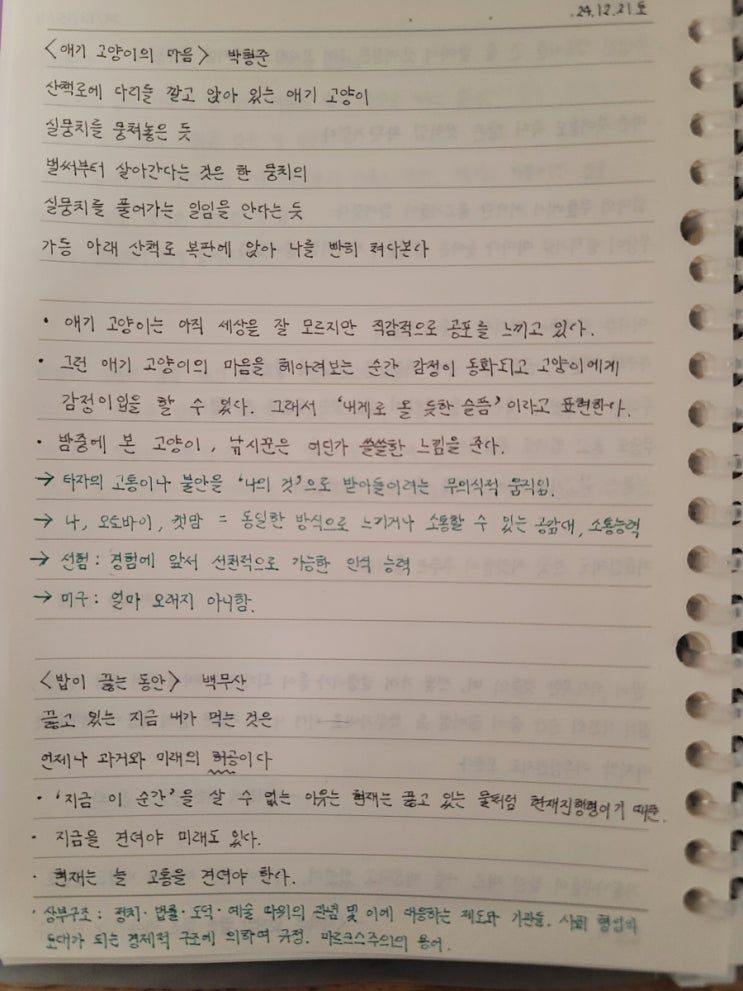 24.12.21 토
<애기 고양이의 마음> 박형준
산책로에 다리를 깔고 앉아 있는 애기 고양이
실뭉치를 뭉쳐놓은 듯
벌써부터 살아간다는 것은 한 뭉치의
실뭉치를 풀어가는 일임을 안다는 듯
가등 아래 산책로 복판에 앉아 나를 빤히 쳐다본다
• 애기 고양이는 아직 세상을 잘 모르지만 직감적으로 공포를 느끼고 있다.
• 그런 애기 고양이의 마음을 헤아려보는 순간 감정이 동화되고 고양이에게
감정이입을 할 수 있다. 그래서 '내게로 올 듯한 슬픔'이라고 표현한다.
• 밤중에 본 고양이, 낚시꾼은 어딘가 쓸쓸한 느낌을 준다.
→ 타자의 고통이나 불안을 '나의 것'으로 받아들이려는 무의식적 움직임.
→ 나, 오토바이, 캣맘 = 동일한 방식으로 느끼거나 소통할 수 있는 공감대, 소통능력
→ 선험 : 경험에 앞서 선천적으로 가능한 인식 능력
→ 미구 : 얼마 오래지 아니함.
<밥이 끓는 동안> 백무산
끓고 있는 지금 내가 먹는 것은
언제나 과거와 미래의 허공이다
• '지금 이 순간'을 살 수 없는 이유는 현재는 끓고 있는 물처럼 현재진행형이기 때문.
• 지금을 견뎌야 미래도 있다.
• 현재는 늘 고통을 견뎌야 한다.
• 상부구조 : 정치·법률·도덕·예술 따위의 관념 및 이에 대응하는 제도와 기관들. 사회 형성의
토대가 되는 경제적 구조에 의하여 규정. 마르크스주의의 용어.